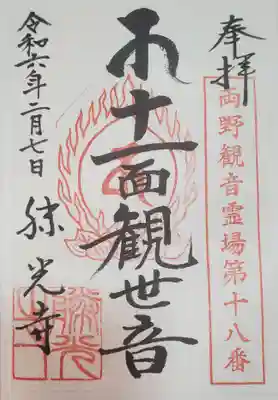 奉拝
両野観音霊場第十八番
十一面観世音
勝光寺
令和六年二月七日